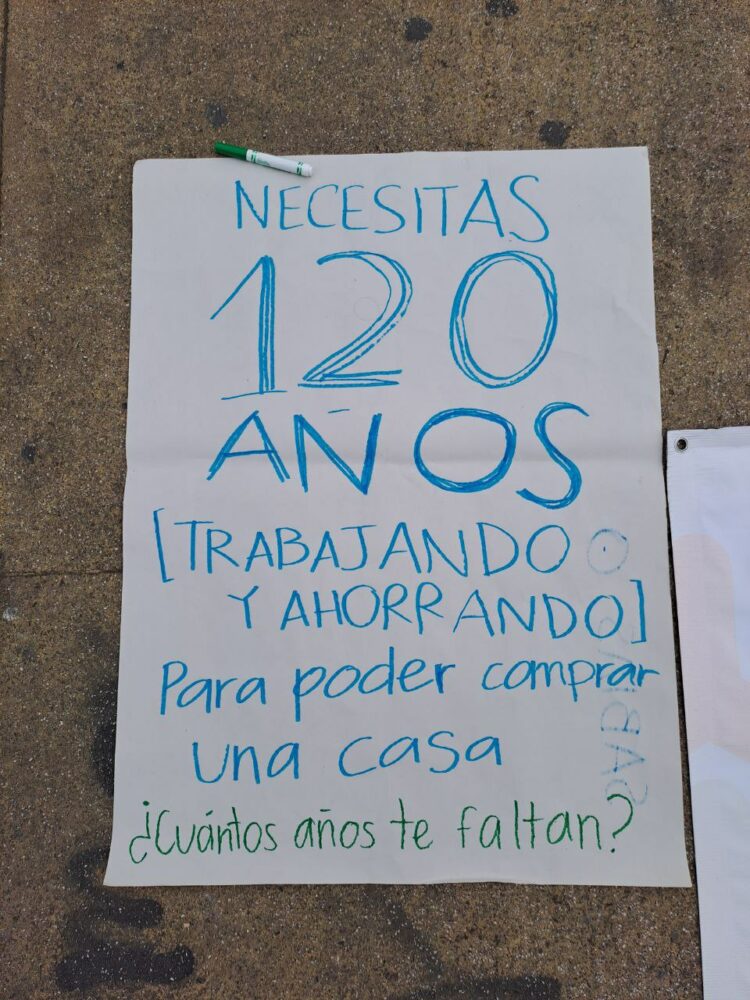 NECESITAS
120
AÑOS
[TRABAJANDO
Y AHORRANDO]
Para poder comprar
una casa
¿Cuántos años te faltan?